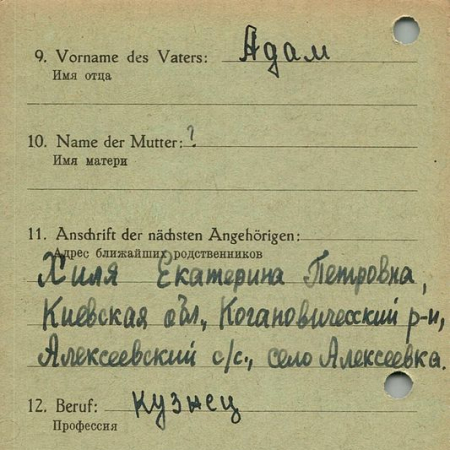 9. Vorname des Vaters: Адам
Имя отца
10. Name der Mutter: ?
Имя матери
11. Anschrift der nächsten Angehörigen:
Адрес ближайших родственников
Хиля Екатерина Петровна,
Киевская обл., Когановический р-н,
Алексеевский с/с., село Алексеевка.
12. Beruf: кузнец
Профессия